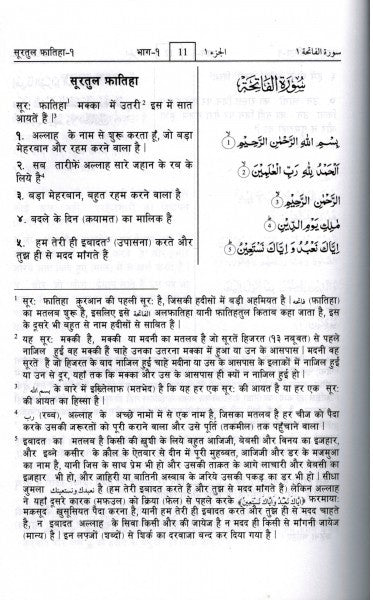 सूरतुल फातिहा-१ भाग-१ 11 الجزء ١ سورة الفاتحة ١
सूरतुल फातिहा
सूरः फातिहा¹ मक्का में उतरी² इस में सात
आयतें हैं।³
१. अल्लाह के नाम से शुरू करता हूँ, जो बड़ा
मेहरबान और रहम करने वाला है।
२. सब तारीफें अल्लाह सारे जहान के रब के
लिये है⁴
३. बड़ा मेहरबान, बहुत रहम करने वाला है
४. बदले के दिन (क़यामत) का मालिक है
५. हम तेरी ही इबादत⁵ (उपासना) करते और
तुझ ही से मदद मांगते हैं
سُورَةُ الفَاتِحَةِ
بِسْمِ اللهِ الرَّحْمٰنِ الرَّحِيْمِ ①
اَلْحَمْدُ لِلّٰهِ رَبِّ الْعٰلَمِيْنَ ②
الرَّحْمٰنِ الرَّحِيْمِ ③
مٰلِكِ يَوْمِ الدِّيْنِ ④
اِيَّاكَ نَعْبُدُ وَاِيَّاكَ نَسْتَعِيْنُ ⑤
¹ सूरः फातिहा क़ुरआन की पहली सूरः है, जिसकी हदीसों में बड़ी अहमियत है। فاتحة (फातिहा)
का मतलब शुरू है, इसलिए इसे الفاتحة अलफातिहा यानी फातिहतुल किताब कहा जाता है, इस
के दूसरे भी बहुत से नाम हदीसों से साबित हैं।
² यह सूरः मक्की है, मक्की या मदनी का मतलब है जो सूरतें हिजरत (१३ नबूवत) से पहले
नाज़िल हुई वह मक्की हैं चाहे उनका उतरना मक्का में हुआ या उन के आसपास। मदनी वह
सूरतें हैं जो हिजरत के बाद नाज़िल हुई चाहे मदीना या उस के आसपास के इलाक़ों में नाज़िल हुई
या उस से दूर, यहाँ तक कि मक्का और उस के आसपास ही क्यों न नाज़िल हुई हों।
³ بسم الله के बारे में इख़्तेलाफ़ (मतभेद) है कि यह हर एक सूरः की आयत है या हर एक सूरः
की आयत का हिस्सा है।
⁴ رب (रब्ब), अल्लाह के अच्छे नामों में से एक नाम है, जिसका मतलब है हर चीज़ को पैदा
करके उसकी ज़रूरतों को पूरी कराने वाला और उसे पूर्ति (तकमील) तक पहुँचाने वाला।
⁵ इबादत का मतलब है किसी की ख़ुशी के लिये बहुत आजिज़ी, बेबसी और विनय का इज़हार,
और इब्ने कसीर के क़ौल के ऐतबार से दीन में पूरी मुहब्बत, आजिज़ी और डर के मजमुआ
का नाम है, यानी जिस के साथ प्रेम भी हो और उसकी ताक़त के आगे लाचारी और बेबसी का
इज़हार भी हो, और ज़ाहिरी या बातिनी अस्बाब के ज़रिये उसकी पकड़ का डर भी हो। सीधा
जुमला نعبدك ونستعينك है (हम तेरी इबादत करते हैं और तुझ से मदद मांगते हैं) लेकिन अल्लाह
ने यहाँ दूसरे कारक (मफ़ऊल) को क्रिया (फ़ेल) से पहले करके ﴿إِيَّاكَ نَعْبُدُ وَإِيَّاكَ نَسْتَعِينُ﴾ फरमाया:
मक़सूद ख़ुसूसियत पैदा करना है, यानी हम तेरी ही इबादत करते और तुझ ही से मदद चाहते
है, न इबादत अल्लाह के सिवा किसी और की जायेज़ है न मदद ही किसी से मांगनी जायेज़
(मान्य) है। इन लफ़्ज़ों (शब्दों) से शिर्क का दरवाज़ा बन्द कर दिया गया है।